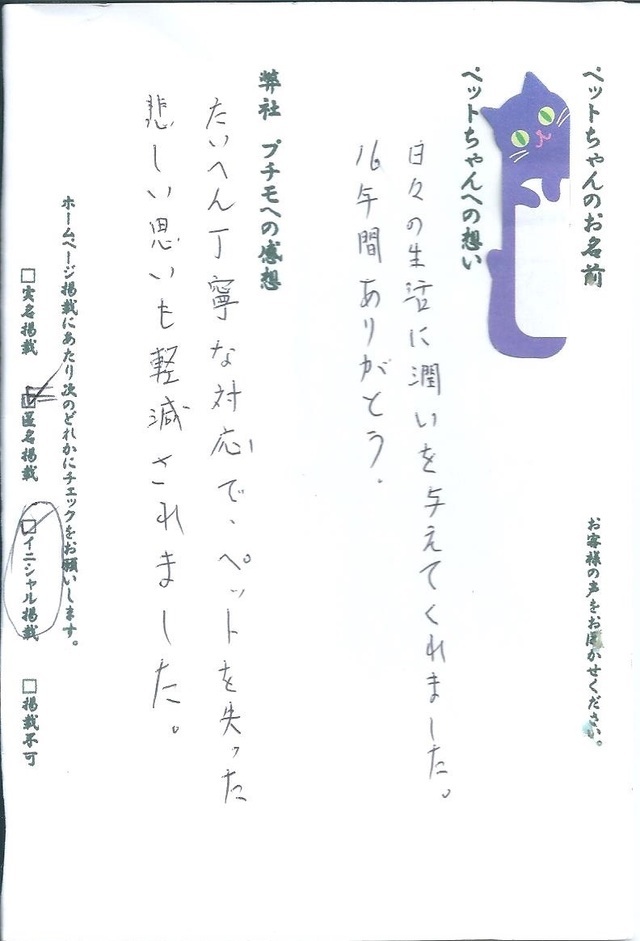 ペットちゃんのお名前
お客様の声をお聞かせください。
ペットちゃんへの想い
日々の生活に潤いを与えてくれました。
16年間ありがとう.
弊社 プチモへの感想
たいへん丁寧な対応で、ペットを失った
悲しい思いも軽減されました。
ホームページ掲載にあたり次のどれかにチェックをお願いします。
□実名掲載 □匿名掲載 □イニシャル掲載 □掲載不可